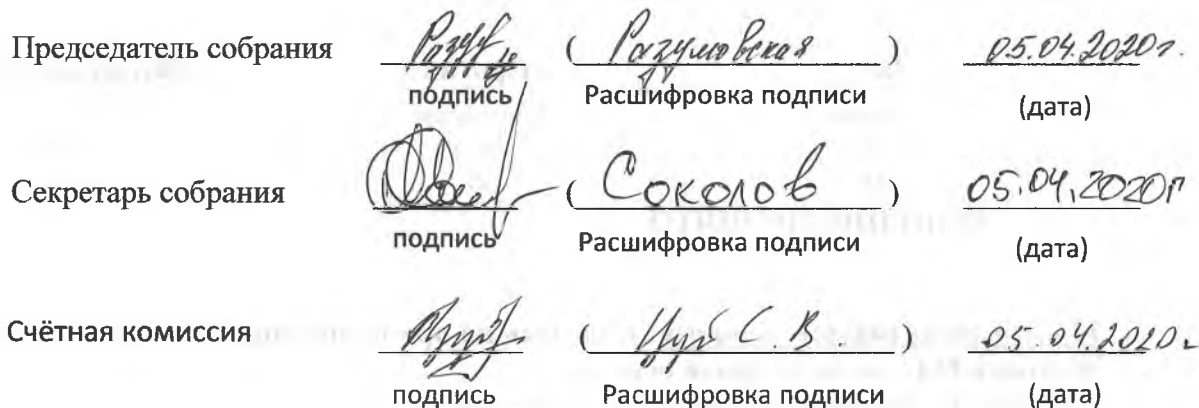 Председатель собрания ( Разумовская ) 05.04.2020г.
подпись Расшифровка подписи (дата)
Секретарь собрания ( Соколов ) 05.04.2020г
подпись Расшифровка подписи (дата)
Счётная комиссия ( С. В. ) 05.04.2020г
подпись Расшифровка подписи (дата)